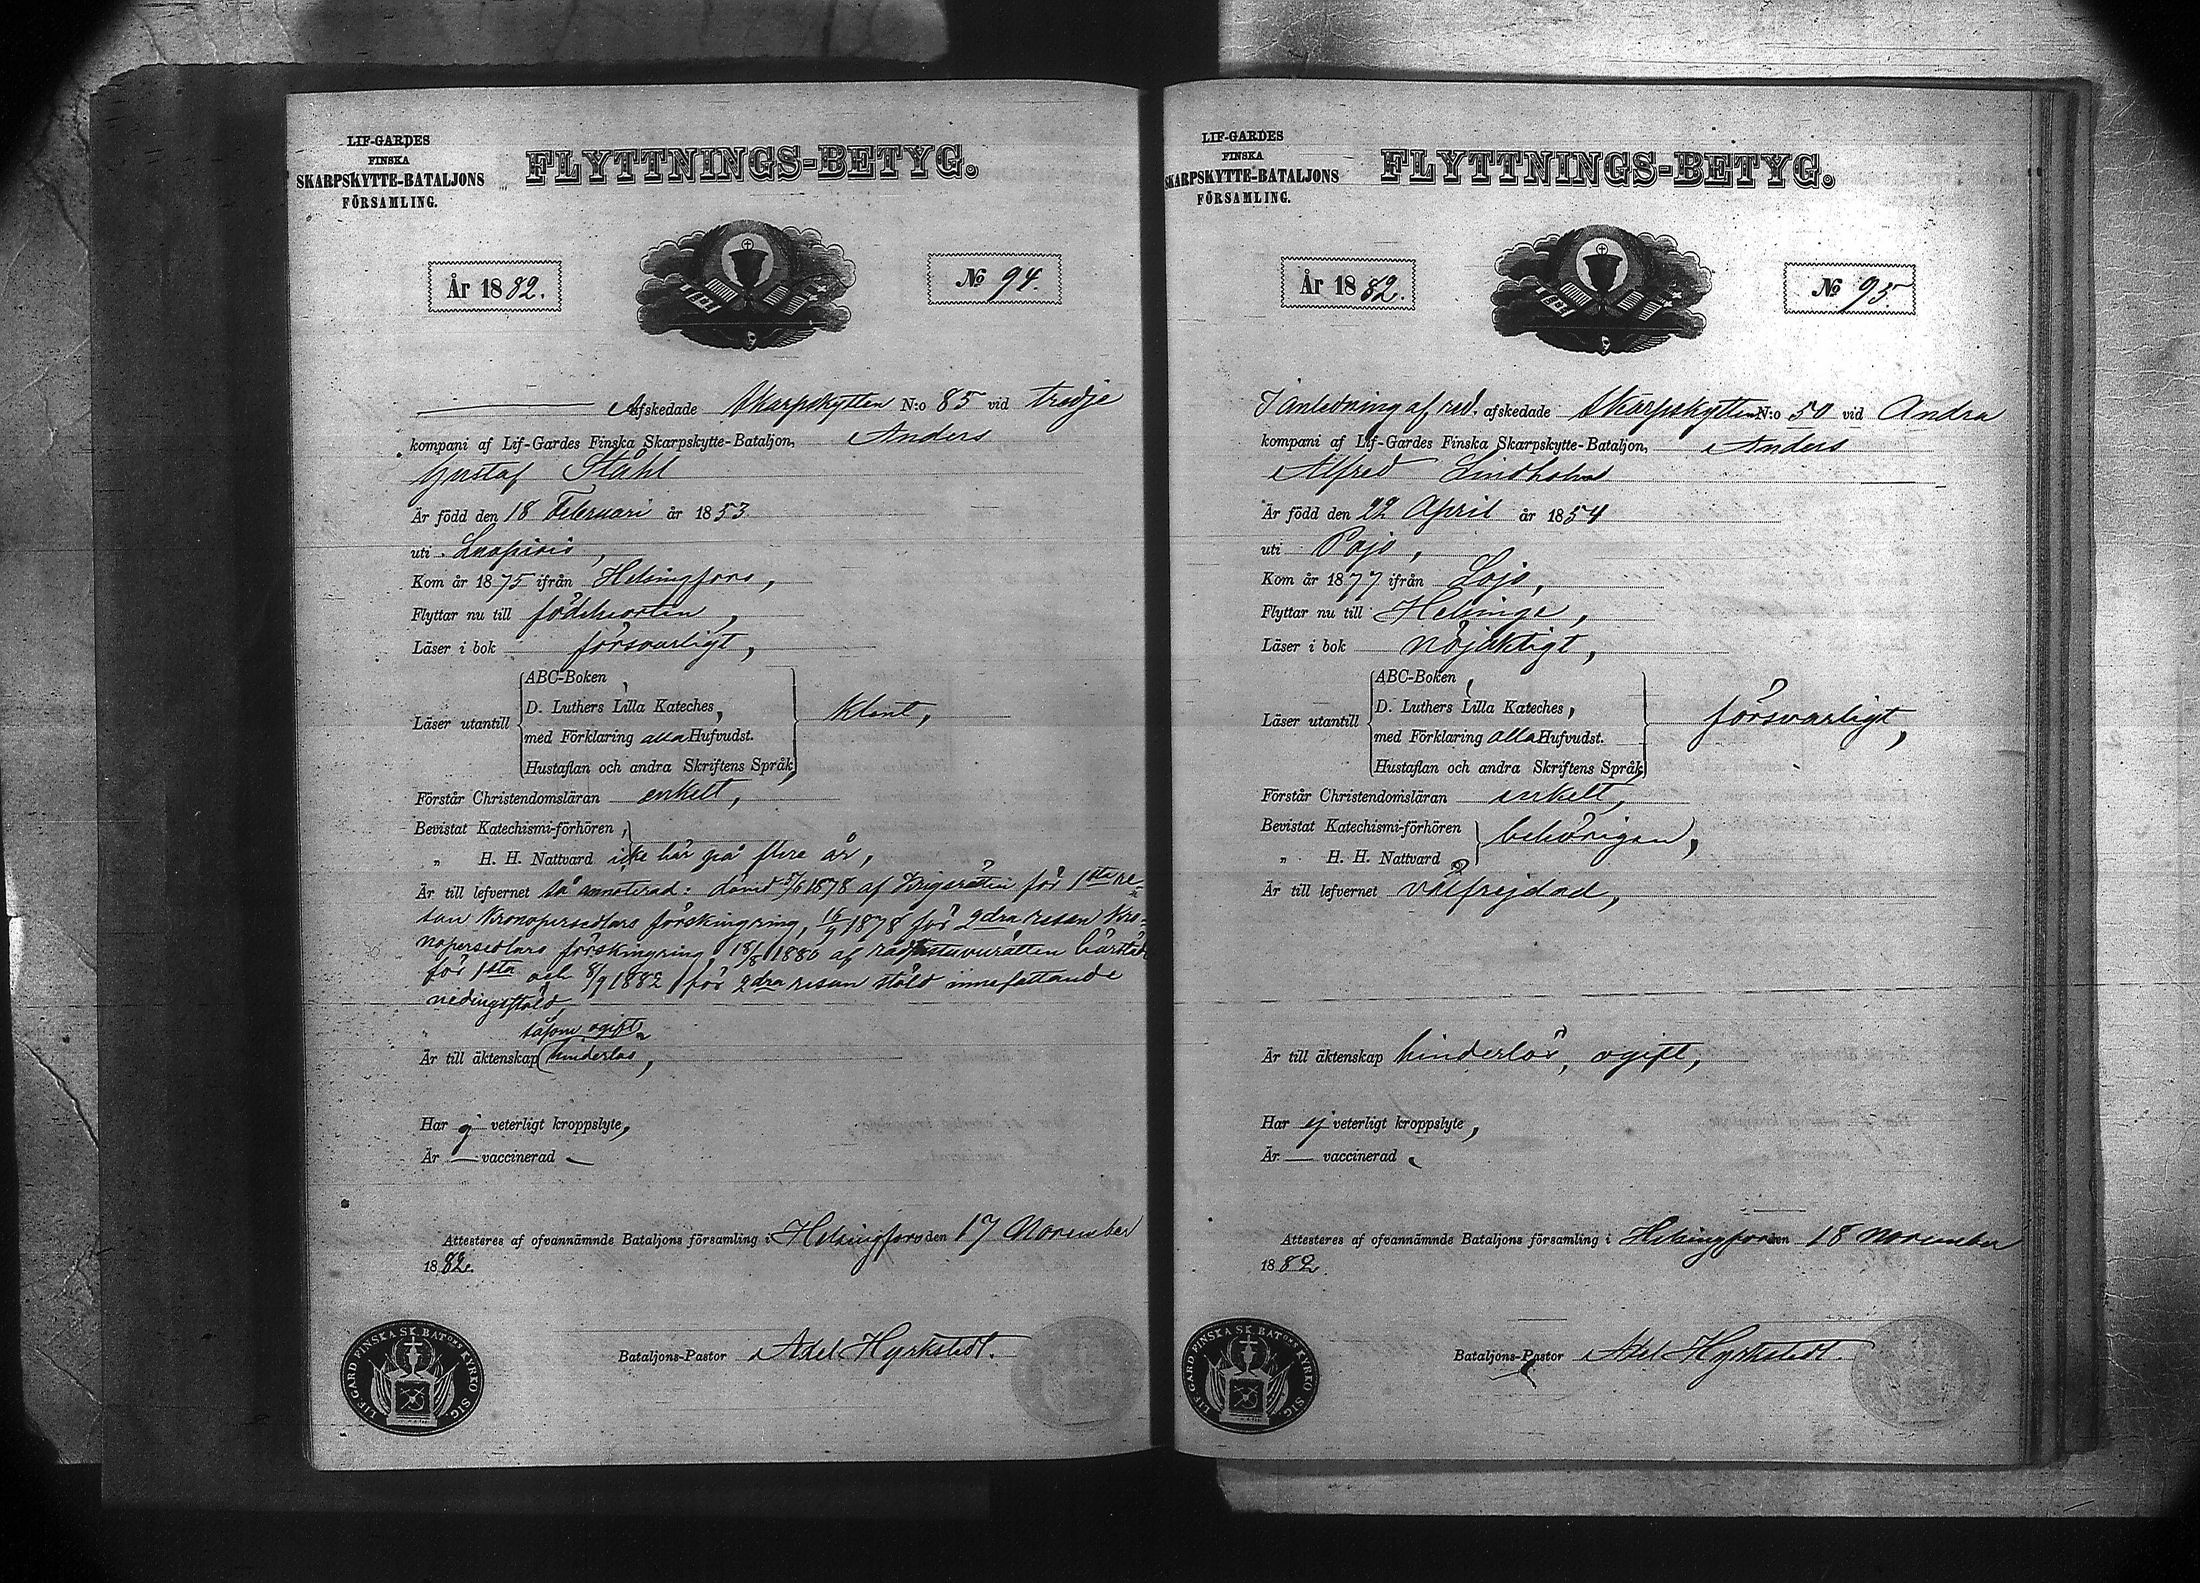 LIF-GARDES
FINSKA
SKARPSKYTTE-BATALJONS
FÖRSAMLING.
FLYTTNINGS-BETYG.
År 1882.
No 94.
Afskedade Skarpskytten N:o 85 vid tredje
kompani af Lif-Gardes Finska Skarpskytte-Bataljon, Anders
Gustaf Ståhl
Är född den 18 Februari år 1853.
uti Loopisis,
Kom år 1875 ifrån Helsingfors,
Flyttar nu till födelseorten,
Läser i bok försvarligt,
Läser utantill
ABC-Boken,
D. Luthers Lilla Kateches,
med Förklaring alla Hufvudst.
Hustaflan och andra Skriftens Språk,
klent,
Förstår Christendomsläran enkelt,
Bevistat Katechismi-förhören,
" H. H. Nattvard icke här på flere år,
Är till lefvernet så annoterad: dömd 5/6 1878 af Krigsrätten för 1sta re-
san Kronopersedlars förskingring, 16/11 1878 för 2dra resan Kro-
nopersedlars förskingring, 18/8 1880 af rådstuvurätten härstäd.
för 1sta och 8/9 1882 för 2dra resan stöld innefattande
nedingsstöld,
såsom ogift
Är till äktenskap hinderlös,
Har ej veterligt kroppslyte,
Är — vaccinerad
Attesteres af ofvannämnde Bataljons församling i Helsingfors den 17 November
1882.
Bataljons-Pastor Axel Hyrkstedt.
LIF GARD FINSKA SK. BATONS KYRKO SIG.
LIF-GARDES
FINSKA
SKARPSKYTTE-BATALJONS
FÖRSAMLING.
FLYTTNINGS-BETYG.
År 1882.
No 95.
I anledning af red. afskedade Skarpskytten N:o 50 vid Andra
kompani af Lif-Gardes Finska Skarpskytte-Bataljon, Anders
Alfred Lindholm
Är född den 22 April år 1854
uti Pojo,
Kom år 1877 ifrån Lojo,
Flyttar nu till Helsinge,
Läser i bok nöjaktigt,
Läser utantill
ABC-Boken,
D. Luthers Lilla Kateches,
med Förklaring alla Hufvudst.
Hustaflan och andra Skriftens Språk,
försvarligt,
Förstår Christendomsläran enkelt,
Bevistat Katechismi-förhören
" H. H. Nattvard
behörigen,
Är till lefvernet välfrejdad,
Är till äktenskap hinderlös, ogift,
Har ej veterligt kroppslyte,
Är — vaccinerad
Attesteres af ofvannämnde Bataljons församling i Helsingfors den 18 November
1882.
Bataljons-Pastor Axel Hyrkstedt.
LIF GARD FINSKA SK. BATONS KYRKO SIG.